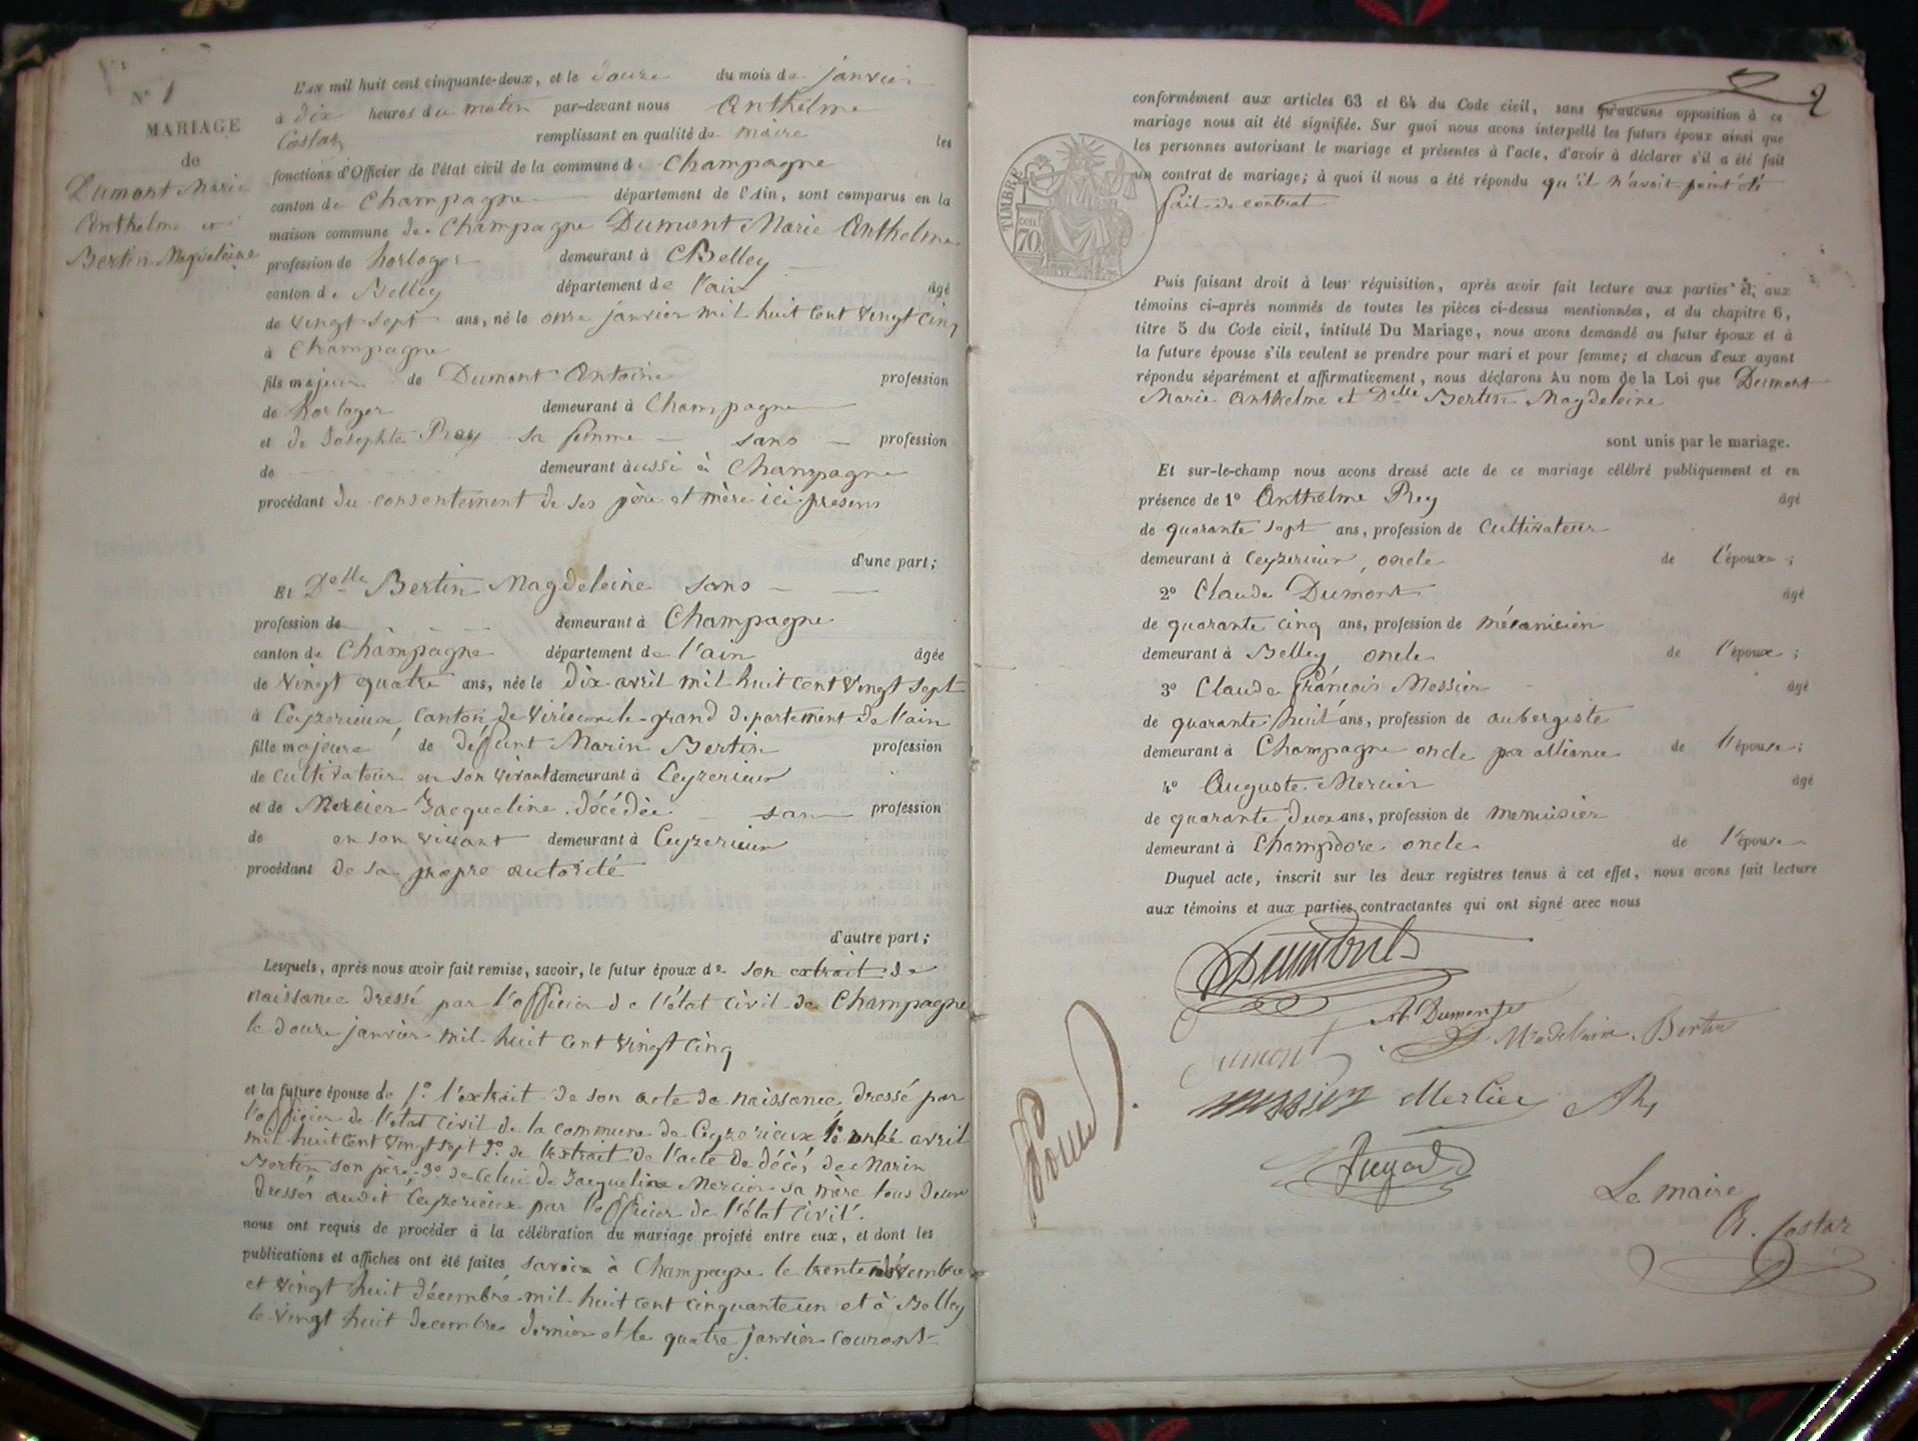 N° 1
MARIAGE
de
Dumont Marie
Anthelme et
Bertin Magdeleine
L'an mil huit cent cinquante-deux, et le douze du mois de janvier
à dix heures du matin par-devant nous Anthelme
Costaz remplissant en qualité de maire les
fonctions d'Officier de l'état civil de la commune de Champagne
canton de Champagne département de l'Ain, sont comparus en la
maison commune de Champagne Dumont Marie Anthelme
profession de horloger demeurant à Belley
canton de Belley département de l'ain âgé
de vingt sept ans, né le onze janvier mil huit cent vingt cinq
à Champagne
fils majeur de Dumont Antoine profession
de horloger demeurant à Champagne
et de Josephte Prey sa femme sans profession
de demeurant aussi à Champagne
procédant du consentement de ses père et mère ici présens
d'une part;
Et Delle Bertin Magdeleine sans
profession de demeurant à Champagne
canton de Champagne département de l'ain âgée
de vingt quatre ans, née le dix avril mil huit cent vingt sept
à Ceyzerieux, canton de Virieu-le-grand département de l'ain
fille majeure de défunt Marin Bertin profession
de cultivateur en son vivant demeurant à Ceyzerieux
et de Mercier Jacqueline décédée sans profession
de en son vivant demeurant à Ceyzerieux
procédant de sa propre autorité
d'autre part;
Lesquels, après nous avoir fait remise, savoir, le futur époux de son extrait de
naissance dressé par l'officier de l'état civil de Champagne
le douze janvier mil huit cent vingt cinq
et la future épouse de 1° l'extrait de son acte de naissance dressé par
l'officier de l'état civil de la commune de Ceyzerieux le onze avril
mil huit cent vingt sept 2° de l'extrait de l'acte de décès de Marin
Bertin son père 3° de celui de Jacqueline Mercier sa mère tous deux
dressés audit Ceyzerieux par l'officier de l'état civil.
nous ont requis de procéder à la célébration du mariage projeté entre eux, et dont les
publications et affiches ont été faites savoir à Champagne le trente novembre
et vingt huit décembre mil huit cent cinquante un et à Belley
le vingt huit decembre dernier et le quatre janvier courant
2
conformément aux articles 63 et 64 du Code civil, sans qu'aucune opposition à ce
mariage nous ait été signifiée. Sur quoi nous avons interpellé les futurs époux ainsi que
les personnes autorisant le mariage et présentes à l'acte, d'avoir à déclarer s'il a été fait
un contrat de mariage; à quoi il nous a été répondu qu'il n'avait point été
fait de contrat
TIMBRE
70
Puis faisant droit à leur réquisition, après avoir fait lecture aux parties et, aux
témoins ci-après nommés de toutes les pièces ci-dessus mentionnées, et du chapitre 6,
titre 5 du Code civil, intitulé Du Mariage, nous avons demandé au futur époux et à
la future épouse s'ils veulent se prendre pour mari et pour femme; et chacun d'eux ayant
répondu séparément et affirmativement, nous déclarons Au nom de la Loi que Dumont
Marie Anthelme et Delle Bertin Magdeleine
sont unis par le mariage.
Et sur-le-champ nous avons dressé acte de ce mariage célébré publiquement et en
présence de 1° Anthelme Prey âgé
de quarante sept ans, profession de cultivateur
demeurant à Ceyzerieux, oncle de l'époux;
2° Claude Dumont âgé
de quarante cinq ans, profession de mécanicien
demeurant à Belley oncle de l'époux;
3° Claude François Messier âgé
de quarante huit ans, profession de aubergiste
demeurant à Champagne oncle par alliance de l'épouse;
4° Auguste Mercier âgé
de quarante deux ans, profession de menuisier
demeurant à Champdore oncle de l'épouse
Duquel acte, inscrit sur les deux registres tenus à cet effet, nous avons fait lecture
aux témoins et aux parties contractantes qui ont signé avec nous
Dumont
A. Dumont
Madelaine Bertin
Dumont
Messier Mercier
Le maire
A. Costaz